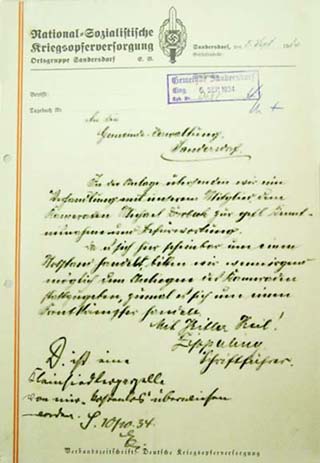 National-Sozialistische
Kriegsopferversorgung
Ortsgruppe Sandersdorf E. V.
Sandersdorf, den 5. Sept. 1934
Betrifft:
Gemeinde Sandersdorf
Eing. 6. SEP. 1934
Tagebuch Nr.
An die
Gemeinde-Verwaltung
Sandersdorf.
In der Anlage übersenden wir eine
Verhandlung mit unserem Mitglied dem
Kameraden zur gefl. Kennt-
nisnahme und Befürwortung.
Da es sich hier scheinbar um einen
Notstand handelt, bitten wir wenn irgend
möglich dem Anliegen des Kameraden
stattzugeben, zumal es sich um einen
Frontkämpfer handelt.
Mit Hitler Heil!
Schriftführer.
D. ist eine
Kleinsiedlerstelle
von mir überwiesen
worden. S. 10/10. 34.
Verbandszeitschrift: Deutsche Kriegsopferversorgung